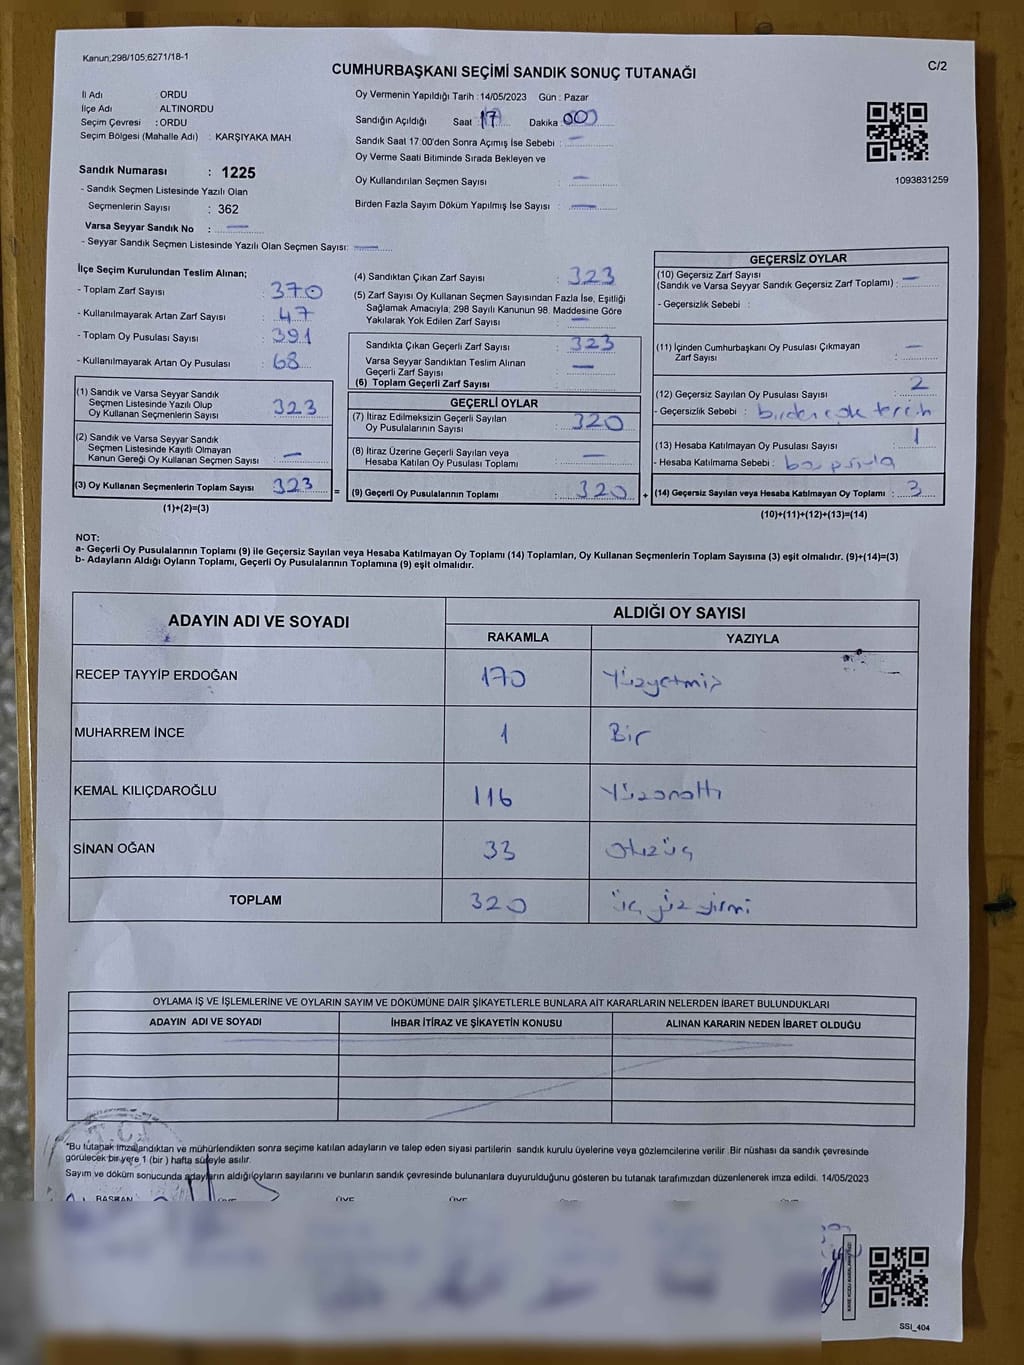 Kanun;298/105;6271/18-1
C/2
CUMHURBAŞKANI SEÇİMİ SANDIK SONUÇ TUTANAĞI
İl Adı ORDU
İlçe Adı ALTINORDU
Seçim Çevresi : ORDU
Seçim Bölgesi (Mahalle Adı) : KARŞIYAKA MAH
Sandık Numarası : 1225
- Sandık Seçmen Listesinde Yazılı Olan
Seçmenlerin Sayısı : 362
Varsa Seyyar Sandık No : —
- Seyyar Sandık Seçmen Listesinde Yazılı Olan Seçmen Sayısı: —
Oy Vermenin Yapıldığı Tarih : 14/05/2023 Gün : Pazar
Sandığın Açıldığı Saat 17 Dakika 00
Sandık Saat 17:00'den Sonra Açımış İse Sebebi : —
Oy Verme Saati Bitiminde Sırada Bekleyen ve
Oy Kullandırılan Seçmen Sayısı : —
Birden Fazla Sayım Döküm Yapılmış İse Sayısı : —
1093831259
İlçe Seçim Kurulundan Teslim Alınan;
- Toplam Zarf Sayısı : 370
- Kullanılmayarak Artan Zarf Sayısı : 47
- Toplam Oy Pusulası Sayısı : 391
- Kullanılmayarak Artan Oy Pusulası : 68
(1) Sandık ve Varsa Seyyar Sandık
Seçmen Listesinde Yazılı Olup
Oy Kullanan Seçmenlerin Sayısı : 323
(2) Sandık ve Varsa Seyyar Sandık
Seçmen Listesinde Kayıtlı Olmayan
Kanun Gereği Oy Kullanan Seçmen Sayısı : —
(3) Oy Kullanan Seçmenlerin Toplam Sayısı : 323
(1)+(2)=(3)
(4) Sandıktan Çıkan Zarf Sayısı : 323
(5) Zarf Sayısı Oy Kullanan Seçmen Sayısından Fazla İse, Eşitliği
Sağlamak Amacıyla; 298 Sayılı Kanunun 98. Maddesine Göre
Yakılarak Yok Edilen Zarf Sayısı : —
Sandıkta Çıkan Geçerli Zarf Sayısı : 323
Varsa Seyyar Sandıktan Teslim Alınan
Geçerli Zarf Sayısı : —
(6) Toplam Geçerli Zarf Sayısı :
GEÇERLİ OYLAR
(7) İtiraz Edilmeksizin Geçerli Sayılan
Oy Pusulalarının Sayısı : 320
(8) İtiraz Üzerine Geçerli Sayılan veya
Hesaba Katılan Oy Pusulası Toplamı : —
= (9) Geçerli Oy Pusulalarının Toplamı : 320
GEÇERSİZ OYLAR
(10) Geçersiz Zarf Sayısı
(Sandık ve Varsa Seyyar Sandık Geçersiz Zarf Toplamı) : —
- Geçersizlik Sebebi :
(11) İçinden Cumhurbaşkanı Oy Pusulası Çıkmayan
Zarf Sayısı : —
(12) Geçersiz Sayılan Oy Pusulası Sayısı : 2
- Geçersizlik Sebebi : birden çok tercih
(13) Hesaba Katılmayan Oy Pusulası Sayısı : 1
- Hesaba Katılmama Sebebi : boş pusula
+ (14) Geçersiz Sayılan veya Hesaba Katılmayan Oy Toplamı : 3
(10)+(11)+(12)+(13)=(14)
NOT:
a- Geçerli Oy Pusulalarının Toplamı (9) ile Geçersiz Sayılan veya Hesaba Katılmayan Oy Toplamı (14) Toplamları, Oy Kullanan Seçmenlerin Toplam Sayısına (3) eşit olmalıdır. (9)+(14)=(3)
b- Adayların Aldığı Oyların Toplamı, Geçerli Oy Pusulalarının Toplamına (9) eşit olmalıdır.
ADAYIN ADI VE SOYADI ALDIĞI OY SAYISI
RAKAMLA YAZIYLA
RECEP TAYYİP ERDOĞAN 170 Yüzyetmiş
MUHARREM İNCE 1 Bir
KEMAL KILIÇDAROĞLU 116 Yüzonaltı
SİNAN OĞAN 33 Otuzüç
TOPLAM 320 üç yüz yirmi
OYLAMA İŞ VE İŞLEMLERİNE VE OYLARIN SAYIM VE DÖKÜMÜNE DAİR ŞİKAYETLERLE BUNLARA AİT KARARLARIN NELERDEN İBARET BULUNDUKLARI
ADAYIN ADI VE SOYADI İHBAR İTİRAZ VE ŞİKAYETİN KONUSU ALINAN KARARIN NEDEN İBARET OLDUĞU
*Bu tutanak imzalandıktan ve mühürlendikten sonra seçime katılan adayların ve talep eden siyasi partilerin sandık kurulu üyelerine veya gözlemcilerine verilir. Bir nüshası da sandık çevresinde
görülecek bir yere 1 (bir ) hafta süreyle asılır.
Sayım ve döküm sonucunda adayların aldığı oyların sayılarını ve bunların sandık çevresinde bulunanlara duyurulduğunu gösteren bu tutanak tarafımızdan düzenlenerek imza edildi. 14/05/2023
BAŞKAN ÜYE ÜYE ÜYE ÜYE
SSI_404